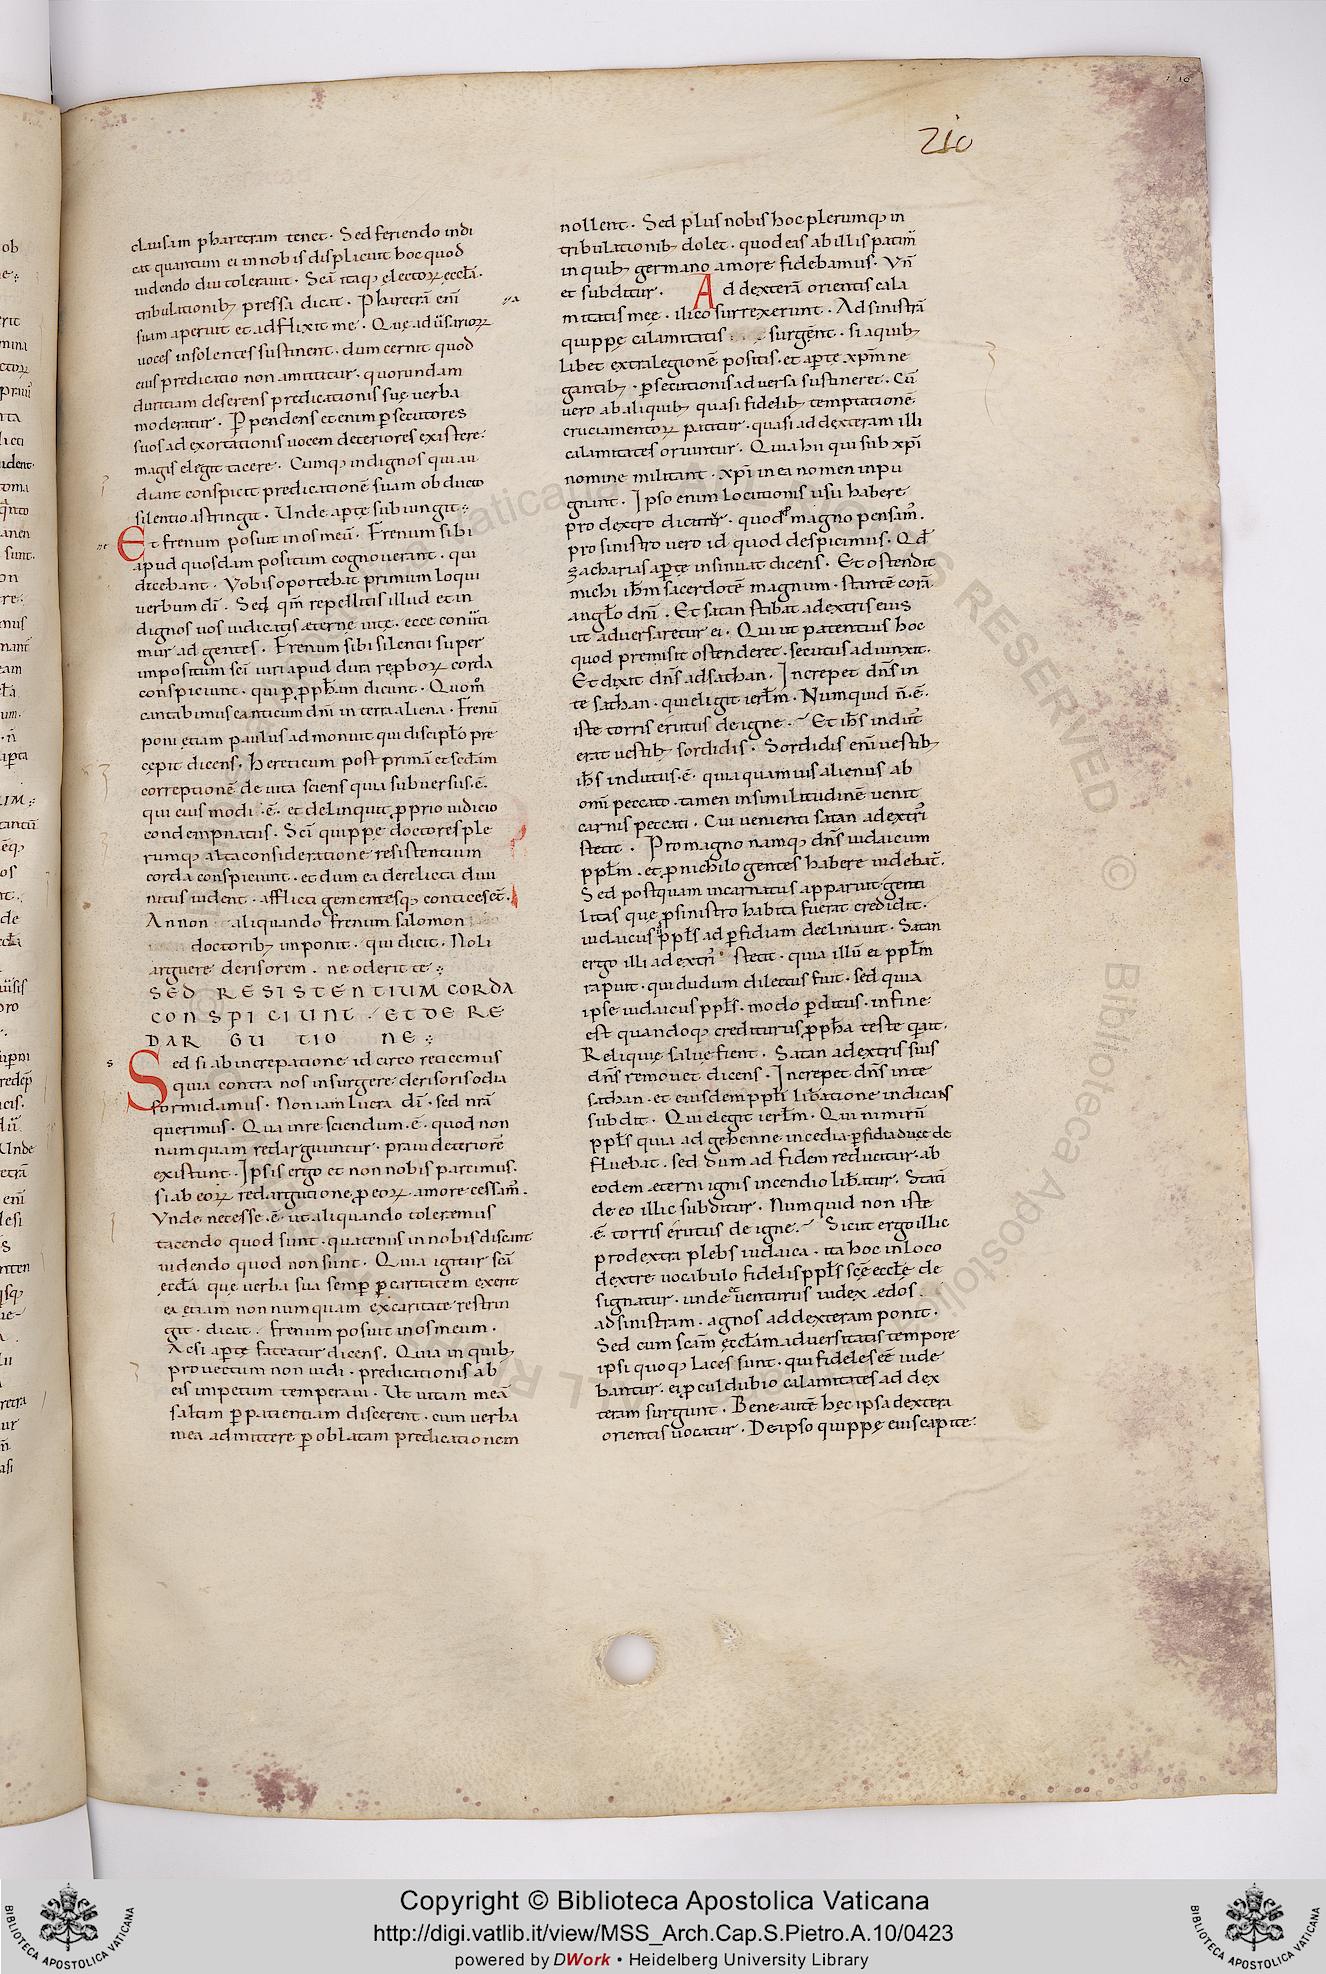 210
clausam pharetram tenet. Sed feriendo indi
cat quantum ei in nobis displicuit hoc quod
uidendo diu tolerauit. Scā itaq; electoꝝ eccła.
tribulationib; pressa dicat. Pharetrā enī
suam aperuit et adflixit me. Quę aduersarioꝝ
uoces insolentes sustinent. dum cernit quod
eius predicatio non amittitur. quorundam
duritiam deserens predicationis suę uerba
moderatur. Ꝑpendens etenim ꝑsecutores
suos ad exortationis uocem deteriores existere.
magis elegit tacere. Cumq; indignos qui au
diant conspicit predicationē suam obducto
silentio astringit. Unde aꝑte subiungit.
Et frenum posuit in os meū. Frenum sibi
apud quosdam positum cognouerant. qui
dicebant. Vobis oportebat primum loqui
uerbum dī. Sed qm̄ repellitis illud et in
dignos uos iudicatis æterne uitę. ecce conuerti
mur ad gentes. Frenum sibi silentii super
impositum scī uiri apud dura reꝓboꝝ corda
conspiciunt. qui ꝑ ꝓpħam dicunt. Quom̊
cantabimus canticum dnī in terra aliena. Frenū
poni etiam paulus admonuit qui discipło pre
cępit dicens. Hereticum post primā et secđam
correptionē deuita sciens quia subuersus. ē.
qui eius modi. ē. et delinquit ꝓprio iudicio
condempnatus. Scī quippe doctores ple
rumq; alta consideratione resistentium
corda conspiciunt. et dum ea derelicta diui
nitus uident. afflicti gementesq; conticesct̄.
An non aliquando frenum salomon
doctorib; imponit. qui dicit. Noli
arguere derisorem. ne oderit te.
SED RESISTENTIUM CORDA
CONSPICIUNT. ET DE RE
DARGUTIONE.
Sed si ab increpatione idcirco reticemus
quia contra nos insurgere derisoris odia
formidamus. Non iam lucra dī. sed nrā
querimus. Qua in re sciendum. ē. quod non
numquam redarguuntur. praui deteriorē
existunt. Ipsis ergo et non nobis parcimus.
si ab eoꝝ redargutione ꝓ eoꝝ amore cessam̄.
Vnde necesse. ē. ut aliquando toleremus
tacendo quod sunt. quatenus in nobis discant
uidendo quod non sunt. Quia igitur scā
eccła que uerba sua semꝑ ꝑ caritatem exerit
ea etiam nonnumquam ex caritate restrin
git. dicat. frenum posuit in os meum.
Ac si aꝑte fateatur dicens. Quia in quib;
prouectum non uidi. predicationis ab
eis impetum temperaui. Ut uitam meā
saltim ꝑ patientiam discerent. cum uerba
mea admittere ꝑ oblatam predicationem
nollent. Sed plus nobis hoc plerumq; in
tribulationib; dolet. quod eas ab illis patim̄
in quib; germano amore fidebamus. Vn̄
et subditur. Ad dexterā orientis cala
mitatis meę. ilico surrexerunt. Ad sinistrā
quippę calamitatis surgēnt. si a quib;
libet extra legionē positis. et aꝑte xp̄m ne
gantib;. ꝑsecutionis aduersa sustineret. Cū
uero ab aliquib; quasi fidelib; temptationē
cruciamentoꝝ patitur. quasi ad dexteram illi
calamitates oriuntur. Quia hii qui sub xp̄i
nomine militant. xp̄i in ea nomen inpu
gnant. Ipso enim locutionis usu habere
pro dextro dicimur. quod pro magno pensam̄.
pro sinistro uero id quod despicimus. Qđ
zacharias aꝑte insinuat dicens. Et ostendit
michi ihm̄ sacerdotē magnum. stantē corā
anglo dnī. Et satan stabat a dextris eius
ut aduersaretur ei. Qui ut patentius hoc
quod premisit ostenderet. secutus adiunxit.
Et dixit dn̄s ad sathan. Increpet dn̄s in
te sathan. qui eligit ierłm. Numquid n̄. ē.
iste torris erutus de igne. Et ihs̄ indut̄
erat uestib; sordidis. Sordidis enī uestib;
ihs̄ indutus. ē. quia quamuis alienus ab
omī peccato. tamen in similitudinē uenit
carnis peccati. Cui uenienti satan a dextri
stetit. Pro magno namq; dn̄s iudaicum
ppłm. et ꝓ nichilo gentes habere uidebat̄.
Sed postquam incarnatus apparuit. genti
litas que ꝓ sinistro habita fuerat credidit.
iudaicus ppłs ad ꝑfidiam declinauit. Satan
ergo illi a dextri stetit. quia illū ei ppłm
rapuit. qui dudum dilectus fuit. sed quia
ipse iudaicus ppłs. modo ꝑditus. in fine
est quandoq; crediturus ꝓpħa teste q̄ait.
Reliquię saluę fient. Satan a dextris suis
dn̄s remouet dicens. Increpet dn̄s in te
sathan. et eiusdem ppłi liƀatione indicans
subdit. Qui elegit ierłm. Qui nimirū
ppłs quia ad gehennę incendia ꝑfidia duce de
fluebat. sed dum ad fidem reducitur. ab
eodem æterni ignis incendio liƀatur. Statī
de eo illic subditur. Numquid non iste
. ē. torris erutus de igne. Sicut ergo illic
pro dextra plebs iudaica. ita hoc in loco
dextre uocabulo fidelis ppłs scę ecclę de
signatur. unde et uenturus iudex. edos
ad sinistram. agnos ad dexteram ponit.
Sed cum scām ęccłam aduersitatis tempore
ipsi quoq; laces sunt. qui fideles eē uide
bantur. ei ꝓculdubio calamitates ad dex
teram surgunt. Bene autē hęc ipsa dextera
orientis uocatur. De ipso quippę eius capite.
Copyright © Biblioteca Apostolica Vaticana
http://digi.vatlib.it/view/MSS_Arch.Cap.S.Pietro.A.10/0423
powered by DWork • Heidelberg University Library
BIBLIOTECA APOSTOLICA VATICANA
BIBLIOTECA APOSTOLICA VATICANA